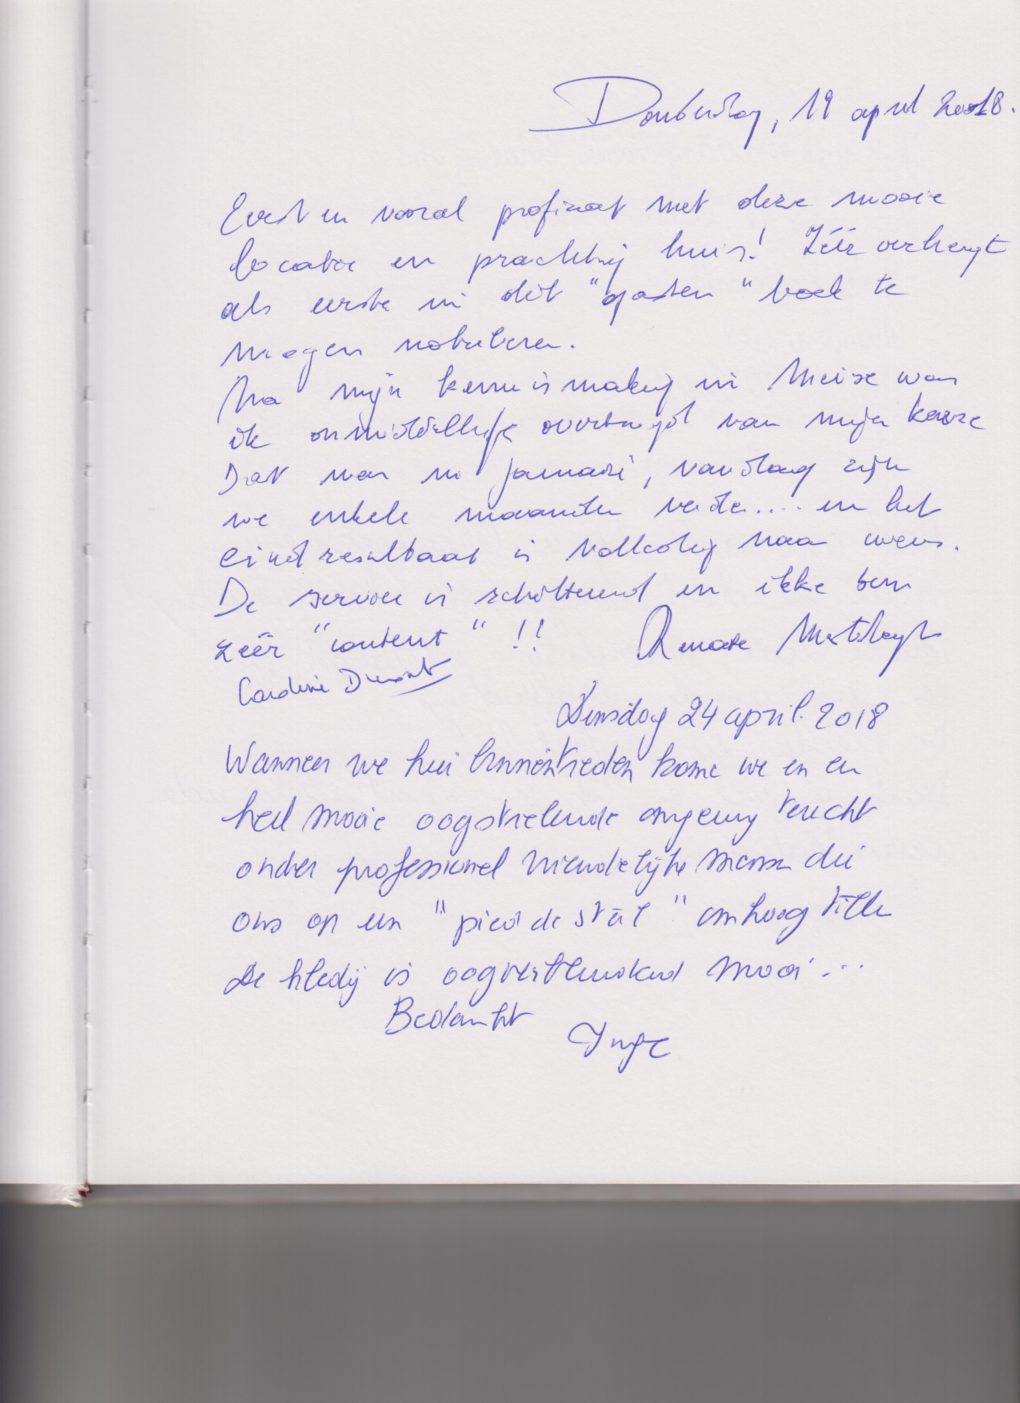 Donderdag, 19 april 2018.
Eerst en vooral proficiat met deze mooie
locatie en prachtig huis! Zéér verheugt
als eerste in dit "gasten" boek te
mogen notuleren.
Na mijn kennismaking in Meise was
ik onmiddellijk overtuigd van mijn keuze
Dat was in januari, vandaag zijn
we enkele maanden verder.... en het
eindresultaat is volledig naar wens.
De service is schitterend en ikke ben
zéér "content" !!
Caroline Dumont
Dinsdag 24 april 2018
Wanneer we hier binnentreden kome we in en
heel mooie oogstrelende omgeving terecht
onder professioneel vriendelijke mensen die
ons op een "pied de stal" omhoog tille
De kledij is oogverblindend mooi ...
Bedankt
Inge